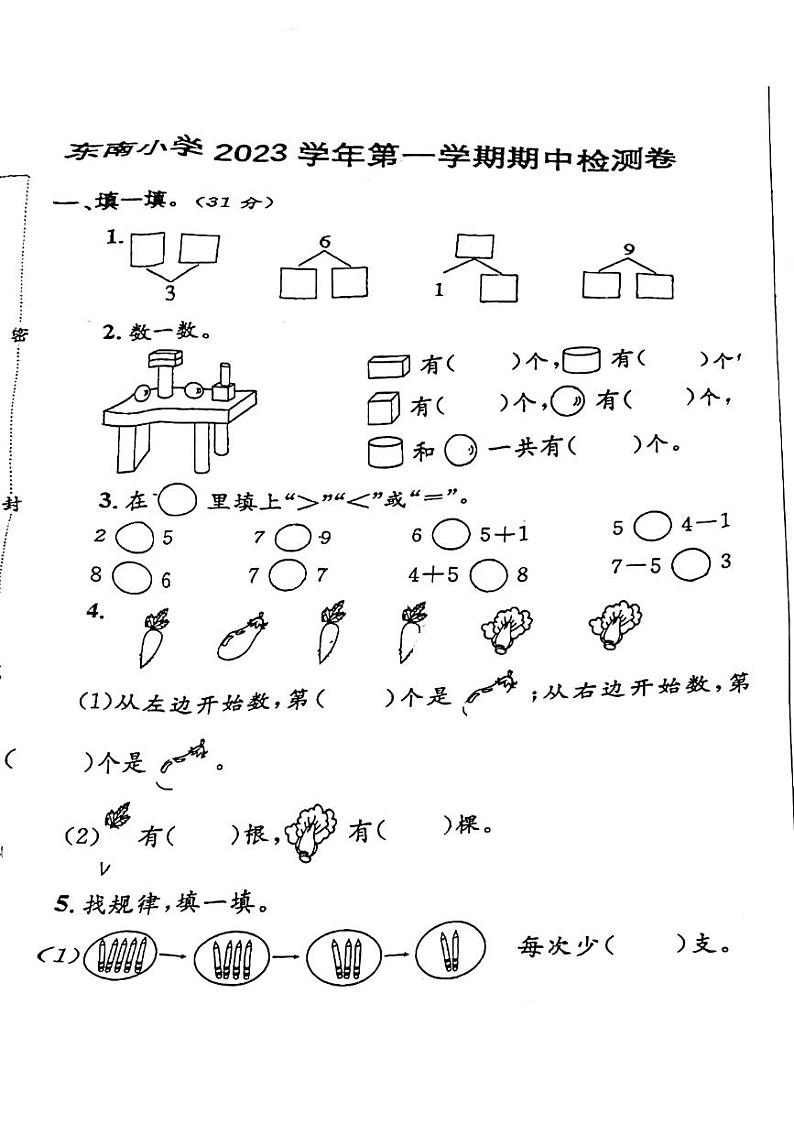 东南小学 2023 学年第一学期期中检测卷
一、填一填。(31 分)
1.
6
9
3
1
2. 数一数。
有( )个, 有( )个,
密
有( )个, 有( )个,
和 一共有( )个。
3. 在 里填上“>”“<”或“=”。
封
2 5 7 9 6 5+1 5 4-1
8 6 7 7 4+5 8 7-5 3
4.
(1)从左边开始数,第( )个是 ;从右边开始数,第
( )个是 。
(2) 有( )根, 有( )棵。
5. 找规律,填一填。
(1) 每次少( )支。